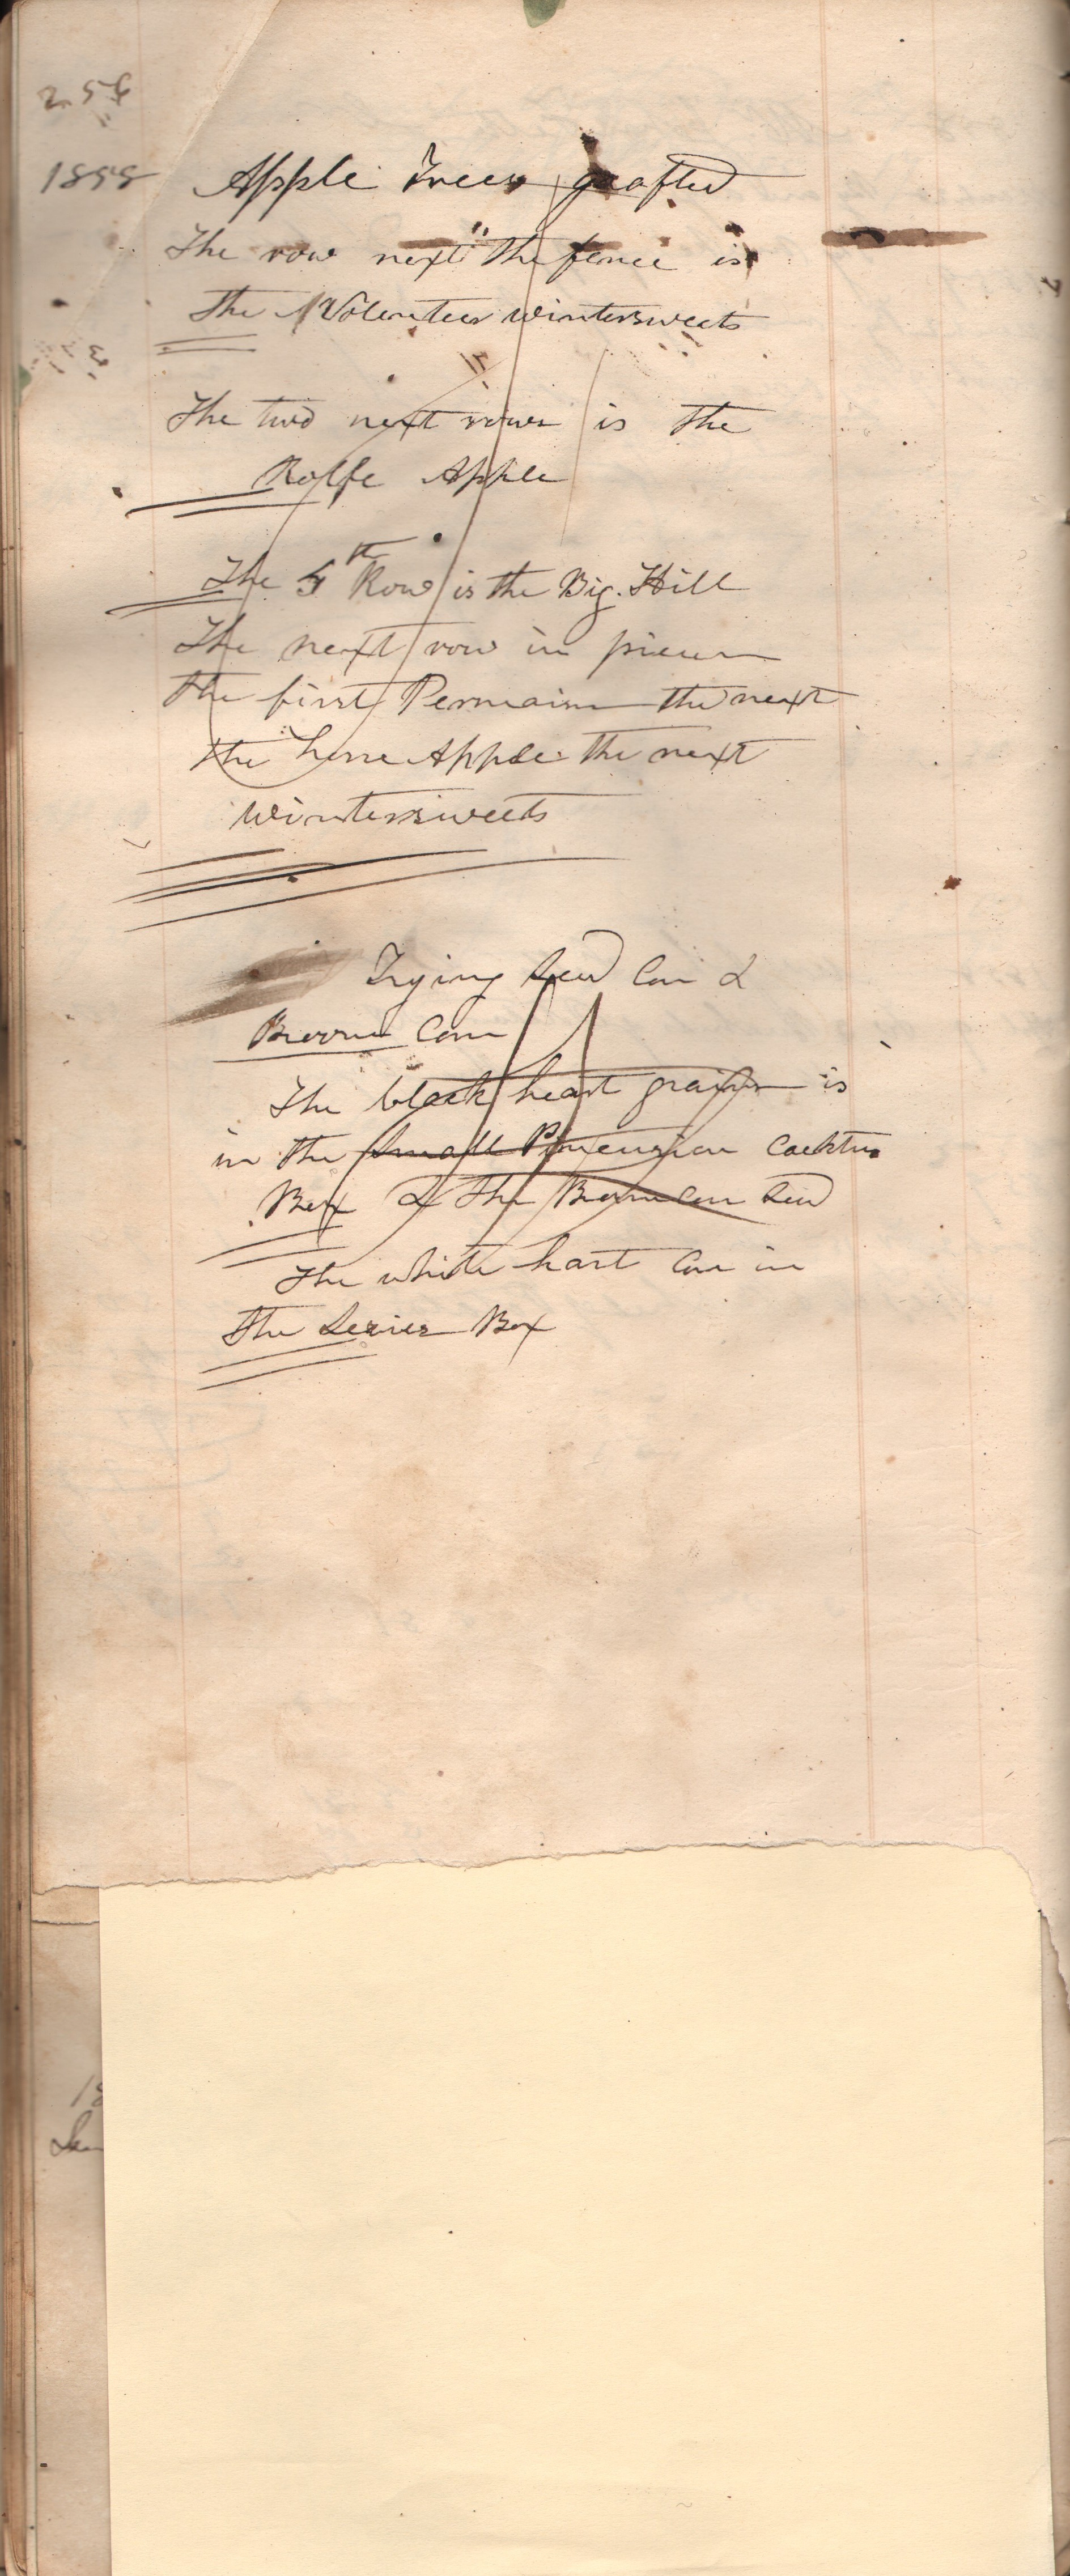 256
1858 Apple Trees grafted
The row next the fence is
the Volenteer wintersweets
The two next rows is the
Rolfe Apple
The 4th Row is the Big. Hill
The next row in pieces
the first Permain the next
the Apple the next
wintersweets
Trying Seed Corn &
Broom Corn
The black heart grains is
in the Small
Box & the Broom Corn Seed
The white hart Corn in
the Box
18